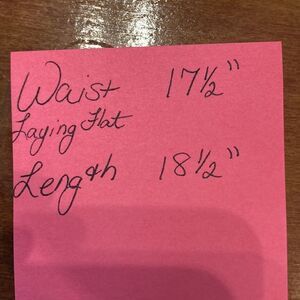 Waist 17½"
Laying Flat
Length 18½"